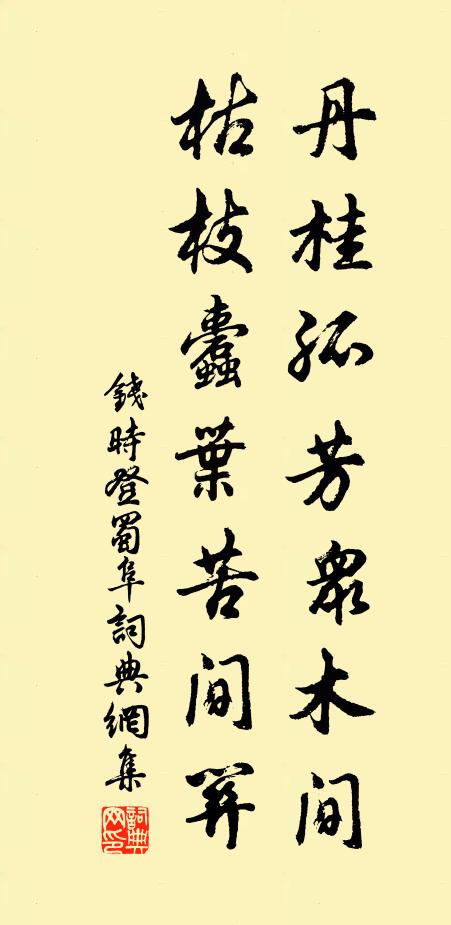 丹桂孤芳眾木間
枯枝蠹葉苦間關
錢時登蜀阜詞典網集
詞典网印